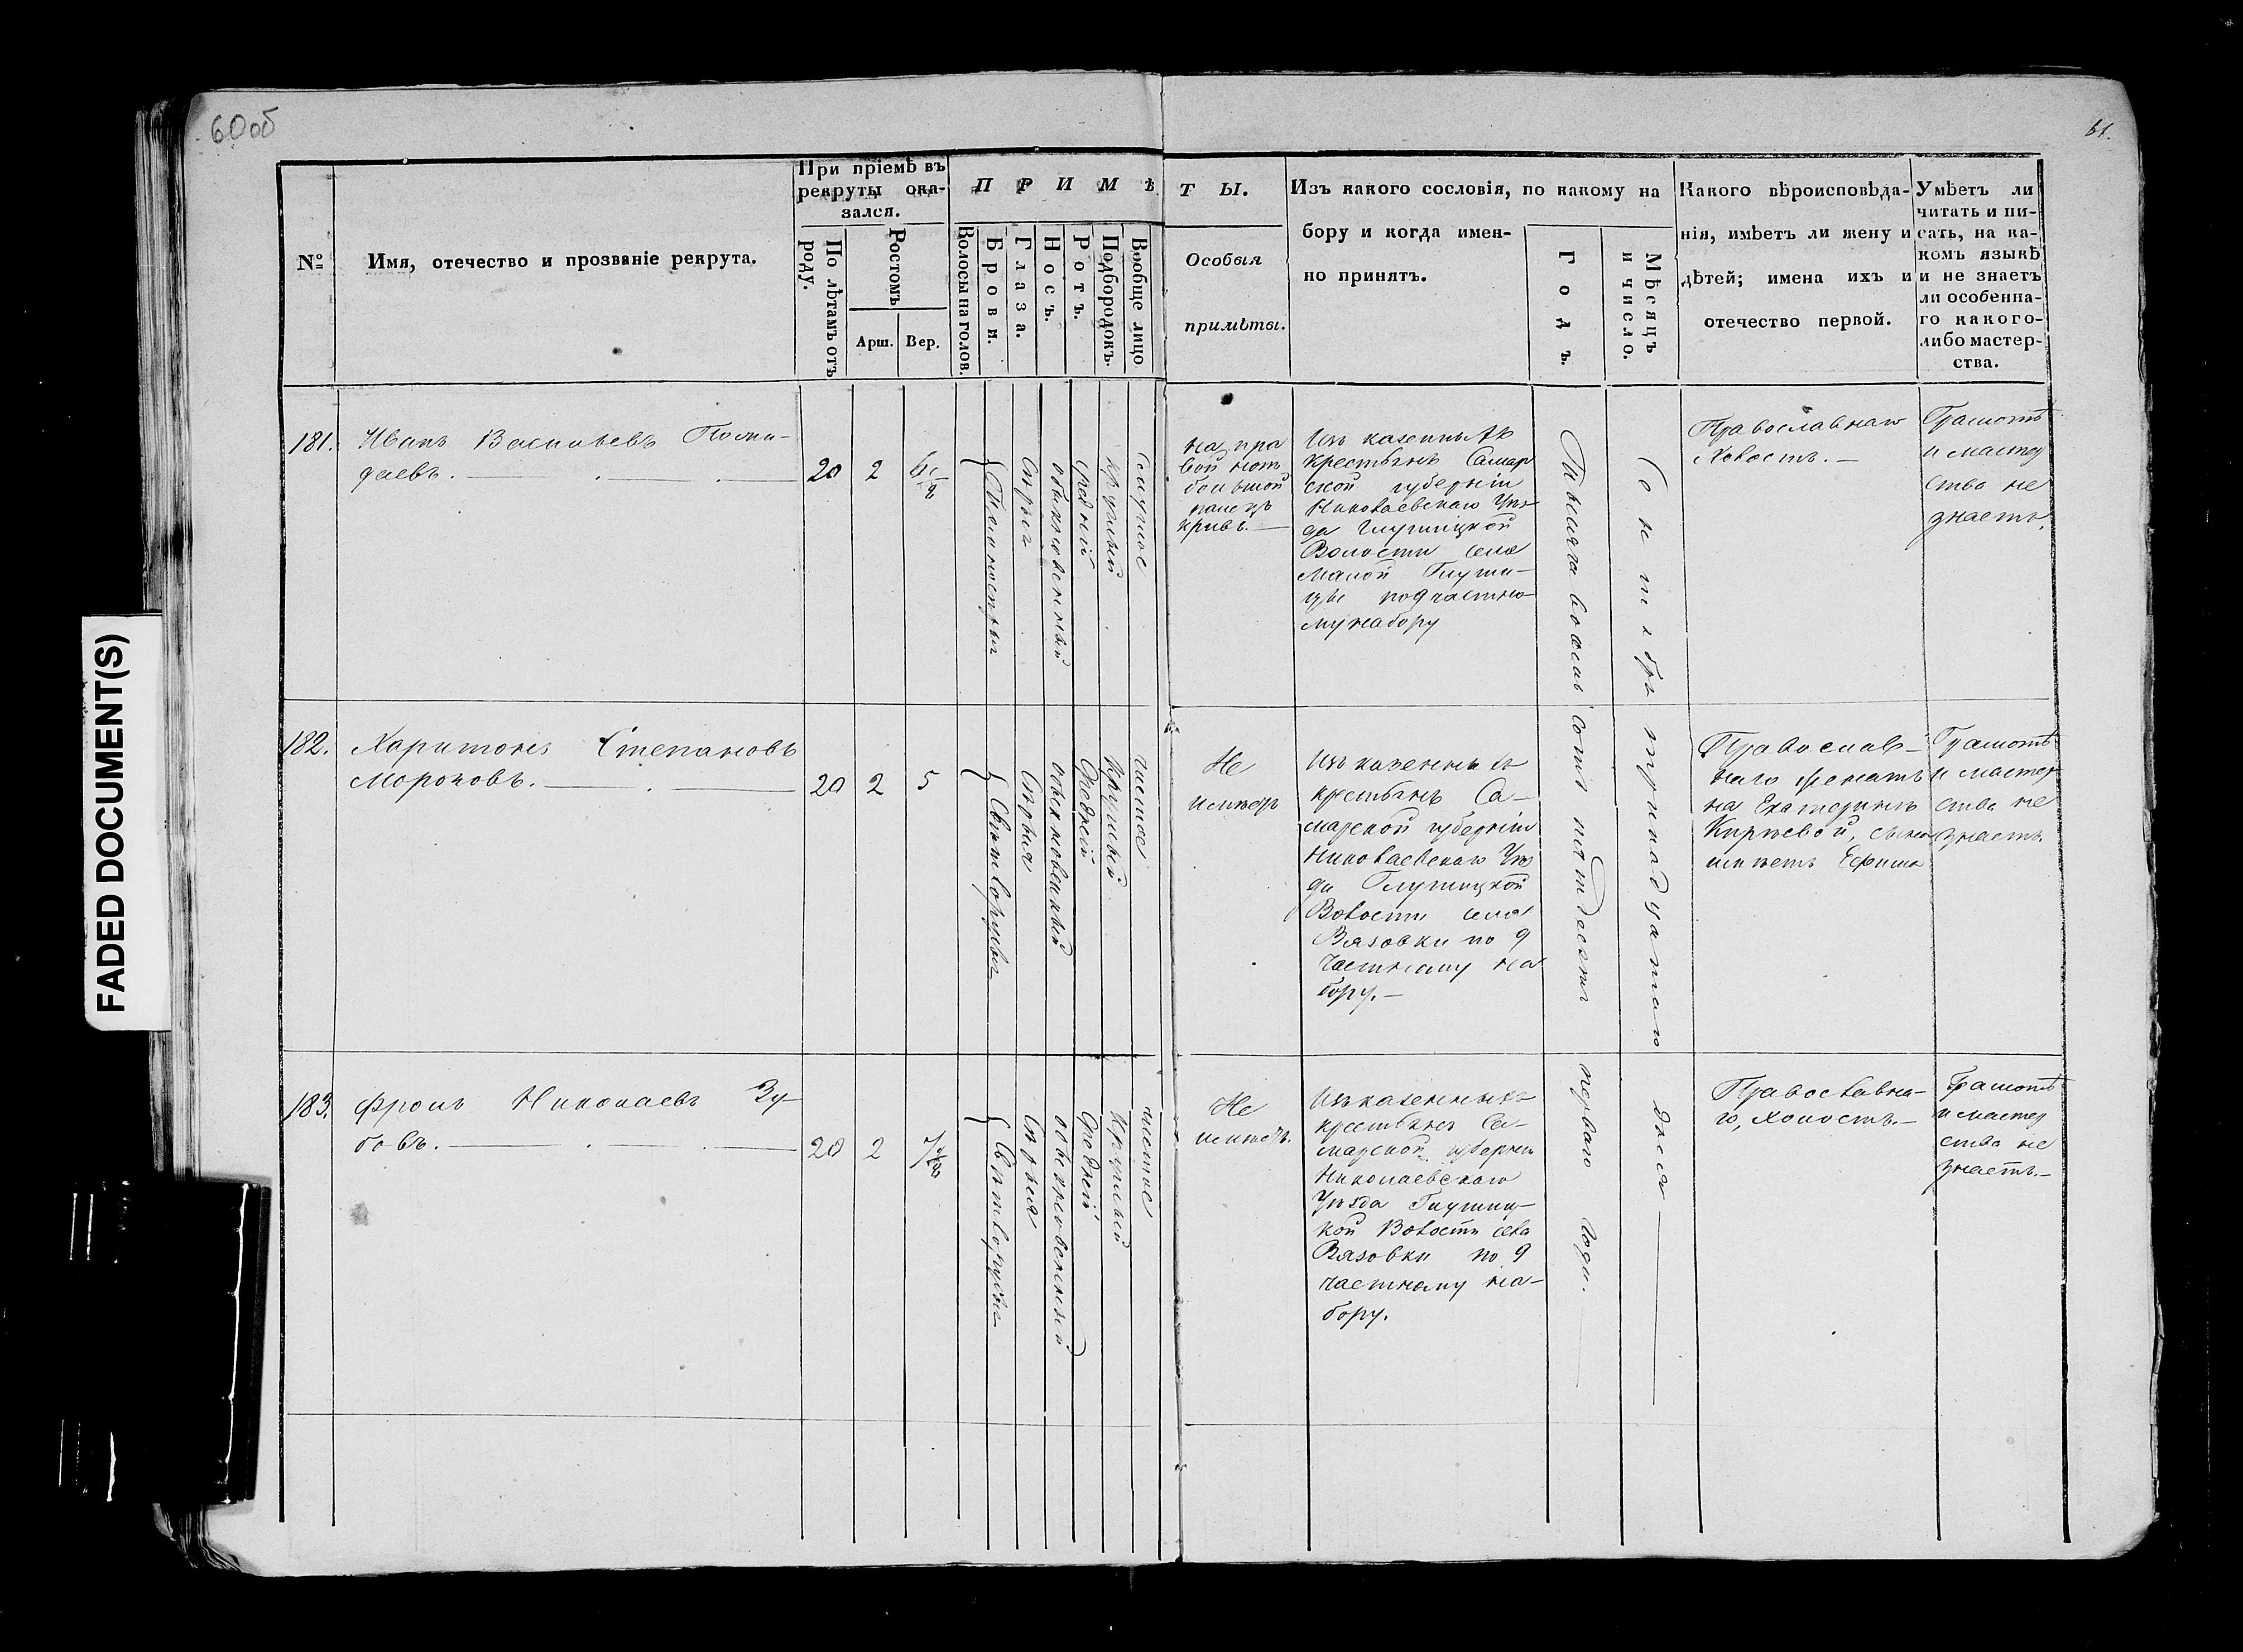 60об
61.
FADED DOCUMENT(S)
№
Имя, отечество и прозваніе рекрута.
При пріемѣ въ
рекруты ока-
зался.
По лѣтамъ отъ
роду.
Ростомъ
Арш.
Вер.
ПРИМѢ
ТЫ.
Волосы на голов.
Брови.
Глаза.
Носъ.
Ротъ.
Подбородокъ.
Вообще лицо
Особыя
примѣты.
Изъ какого сословія, по какому на
бору и когда имен-
но принятъ.
Годъ.
Мѣсяцъ
и число.
Какого вѣроисповѣда-
нія, имѣетъ ли жену и
дѣтей; имена ихъ и
отечество первой.
Умѣетъ ли
читать и пи-
сать, на ка-
комъ языкѣ
и не знаетъ
ли особенна-
го какого-
либо мастер-
ства.
181.
Иванъ Васильевъ
даевъ.
20
2
Сѣрыя
обыкновенный
средній
круглый
на пра
вой ногѣ
большой
палецъ
кривъ.
Изъ казенныхъ
крестьянъ Самар
ской губерніи
Николаевскаго Уѣз
да Глушицкой
Волости села
Малой Глуши-
цы по 9 частно-
му набору
Тысяча восемь сотъ пятьдесятъ перваго года.
Октября тринадцатаго дня
Православнаго
Холостъ.
Грамотѣ
и мастер
ства не
знаетъ.
182.
Харитонъ Степановъ
Мороковъ.
20
2
5
Свѣтлорусыя
Сѣрыя
обыкновенный
Средній
Круглый
чистое
Не
имѣетъ
Изъ казенныхъ
крестьянъ Са-
марской губерніи
Николаевскаго Уѣз
да Глушицкой
Волости села
Вязовки по 9
частному на
бору.
Православ-
наго женатъ
на Екатеринѣ
сына
имѣетъ Ефима
Грамотѣ
и мастер
ства не
знаетъ.
183.
Фролъ Николаевъ Зу-
бовъ.
20
2
Свѣтлорусыя
Сѣрыя
обыкновенный
Средній
Круглый
чистое
Не
имѣетъ.
Изъ казенныхъ
крестьянъ Са-
марской губерніи
Николаевскаго
Уѣзда Глушиц-
кой Волости села
Вязовки по 9
частному на-
бору.
Православна-
го, холостъ.
Грамотѣ
и мастер
ства не
знаетъ.